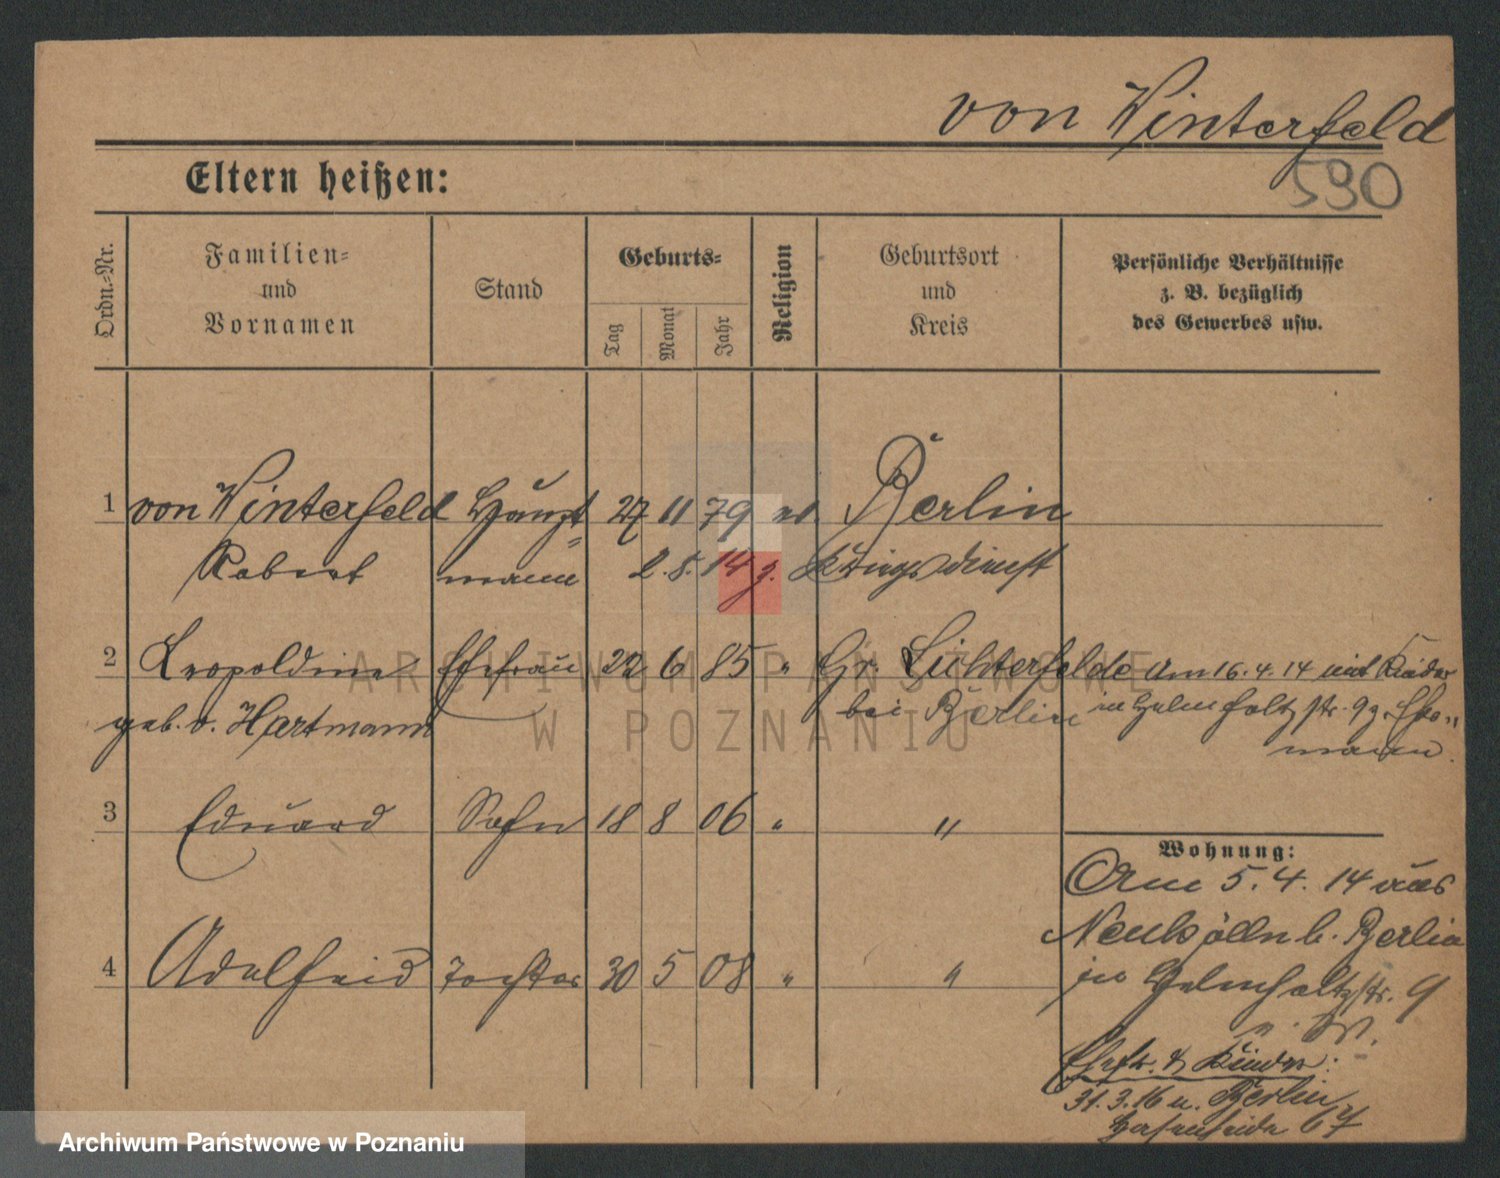 von Winterfeld
590
Eltern heißen:
Ordn.-Nr.
Familien-
und
Vornamen
Stand
Geburts-
Tag
Monat
Jahr
Religion
Geburtsort
und
Kreis
Persönliche Verhältnisse
z. B. bezüglich
des Gewerbes usw.
1 von Winterfeld Haupt= 27 11 79 ev. Berlin
Robert mann 2. 8. 14 z. Kriegsdienst
2 Leopoldine Ehefrau 22 6 85 " Gr. Lichterfelde Am 16. 4. 14 mit Kinder
geb. v. Hartmann bei Berlin in Helmholtzstr. 9 z. Ehe-
mann.
3 Eduard Sohn 18 8 06 " "
4 Adelheid Tochter 30 5 08 " "
Wohnung:
Am 5. 4. 14 aus
Neukölln b. Berlin
in Helmholtzstr. 9
Ehefr. & Kinder:
31. 3. 16 n. Berlin
Hasenheide 67
ARCHIWUM PAŃSTWOWE
W POZNANIU
Archiwum Państwowe w Poznaniu